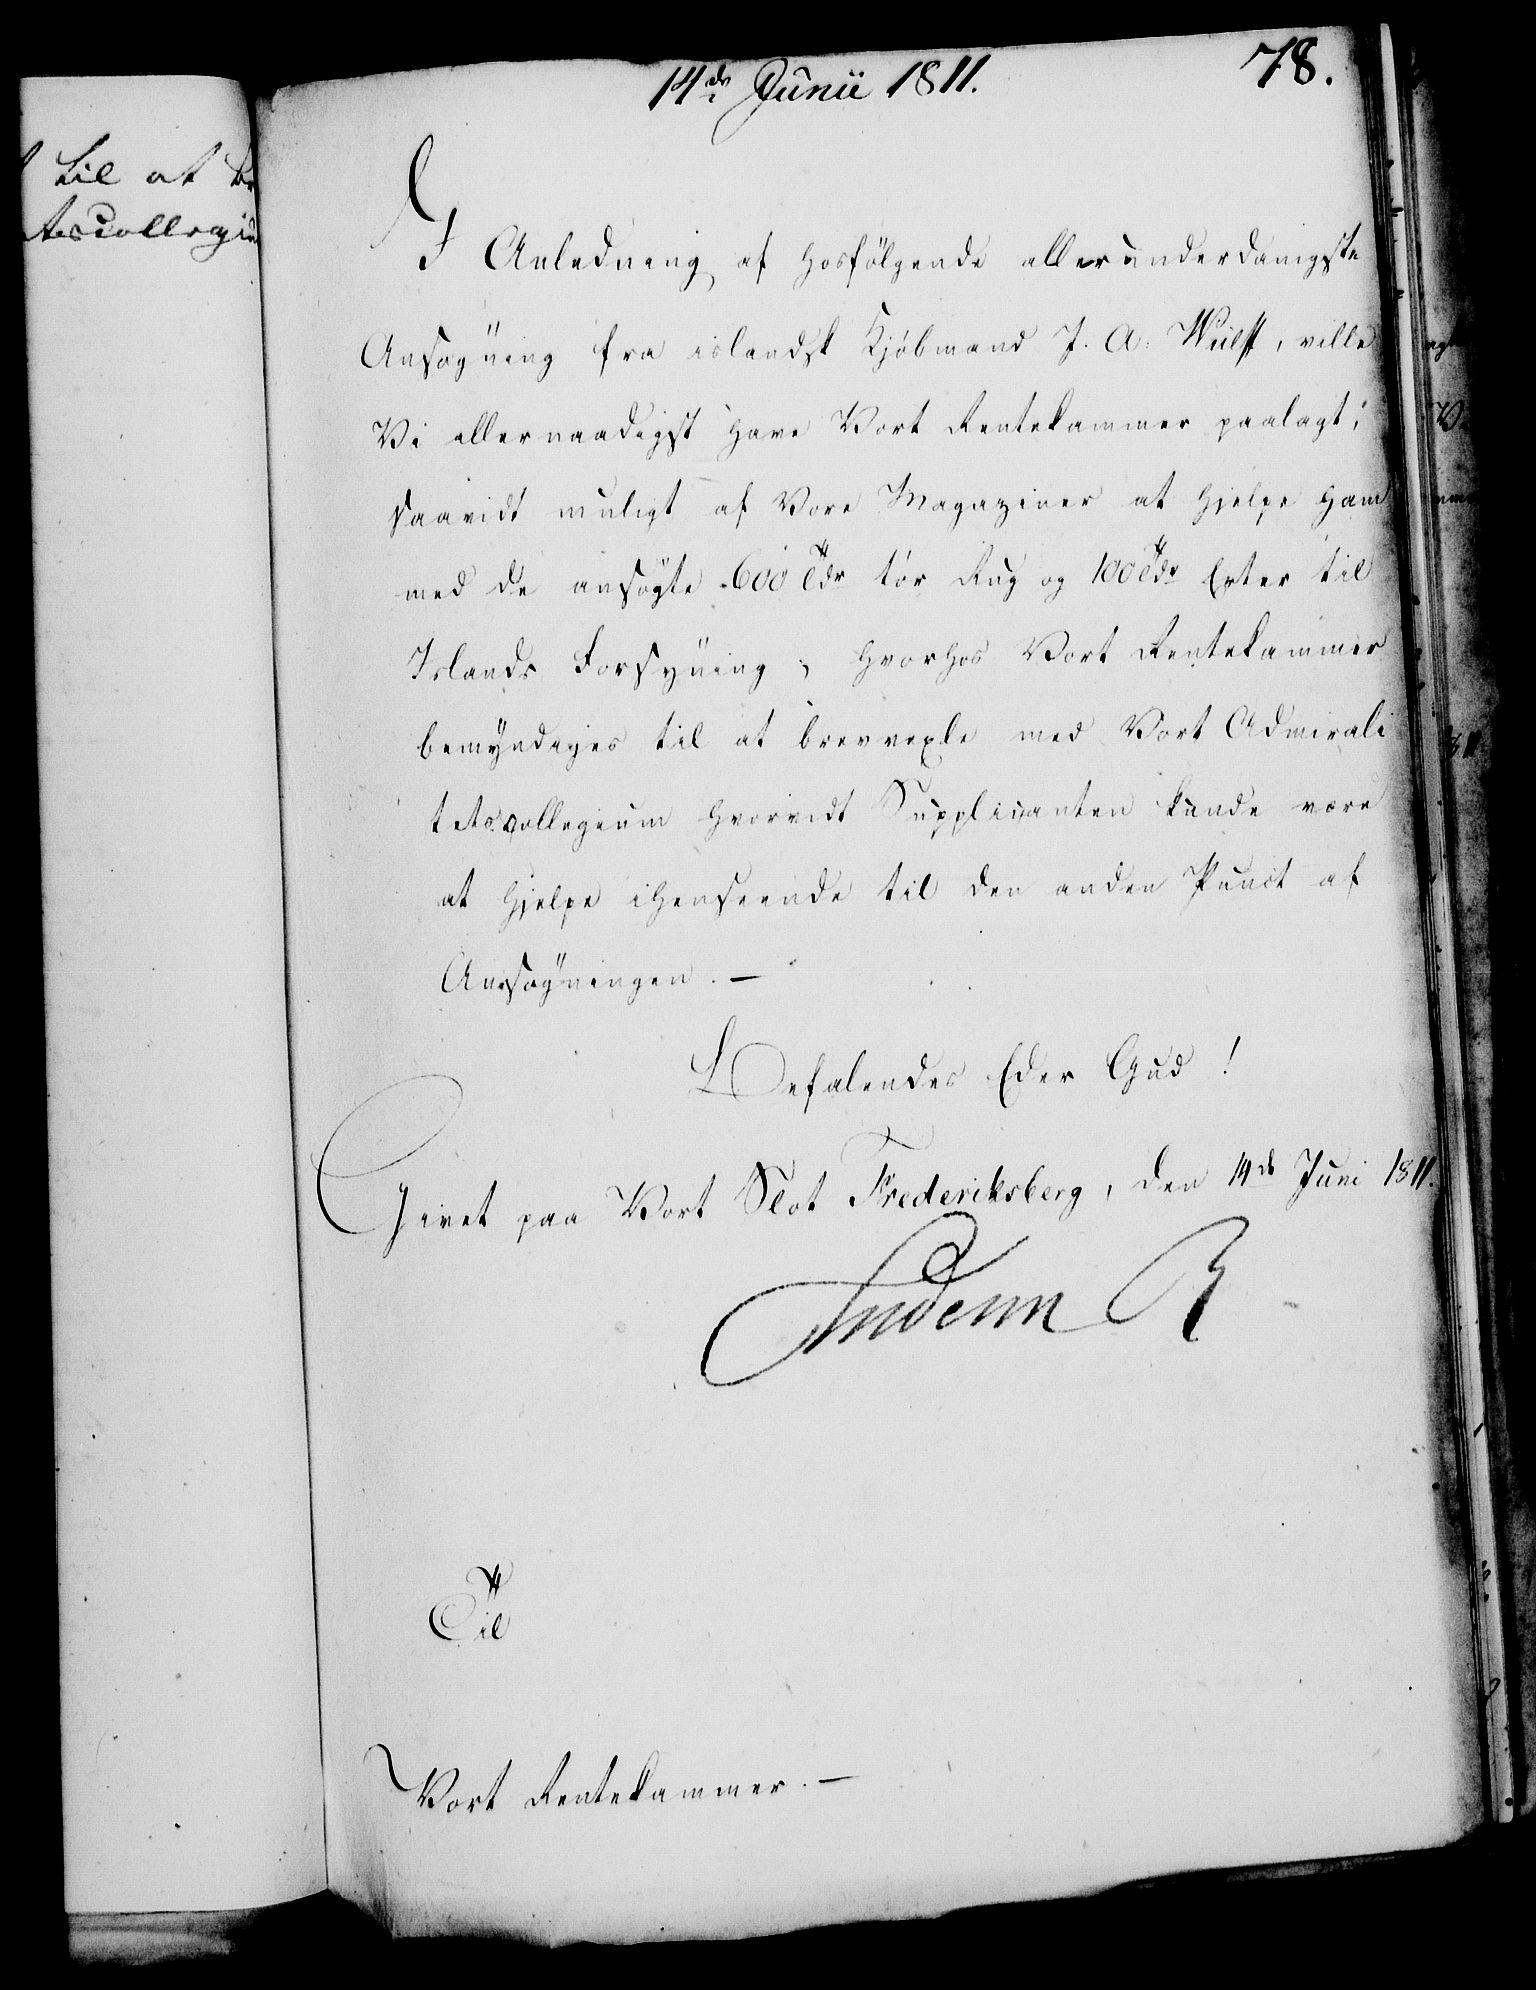 14de Junii 1811.
78.
til at
tscollegiu
I Anledning af hosfölgende allerunderdanigste
Ansøgning fra islandsk Kjøbmand J. A. Wulff, ville
Vi allernaadigst have Vort Rentekammer paalagt,
saavidt muligt af Vore Magaziner at hjelpe ham
med de ansøgte 600 Tdr tør Rug og 100 Tdr Erter til
Islands Forsyning, hvorhos Vort Rentekammer
bemyndiges til at brevvexle med Vort Admirali
tetscollegium hvorvidt Supplicanten kunde være
at hjelpe ihenseende til den anden Punct af
Ansøgningen. —
Befalendes Eder Gud!
Givet paa Vort Slot Frederiksberg, den 14de Juni 1811.
Til
Vort Rentekammer. —